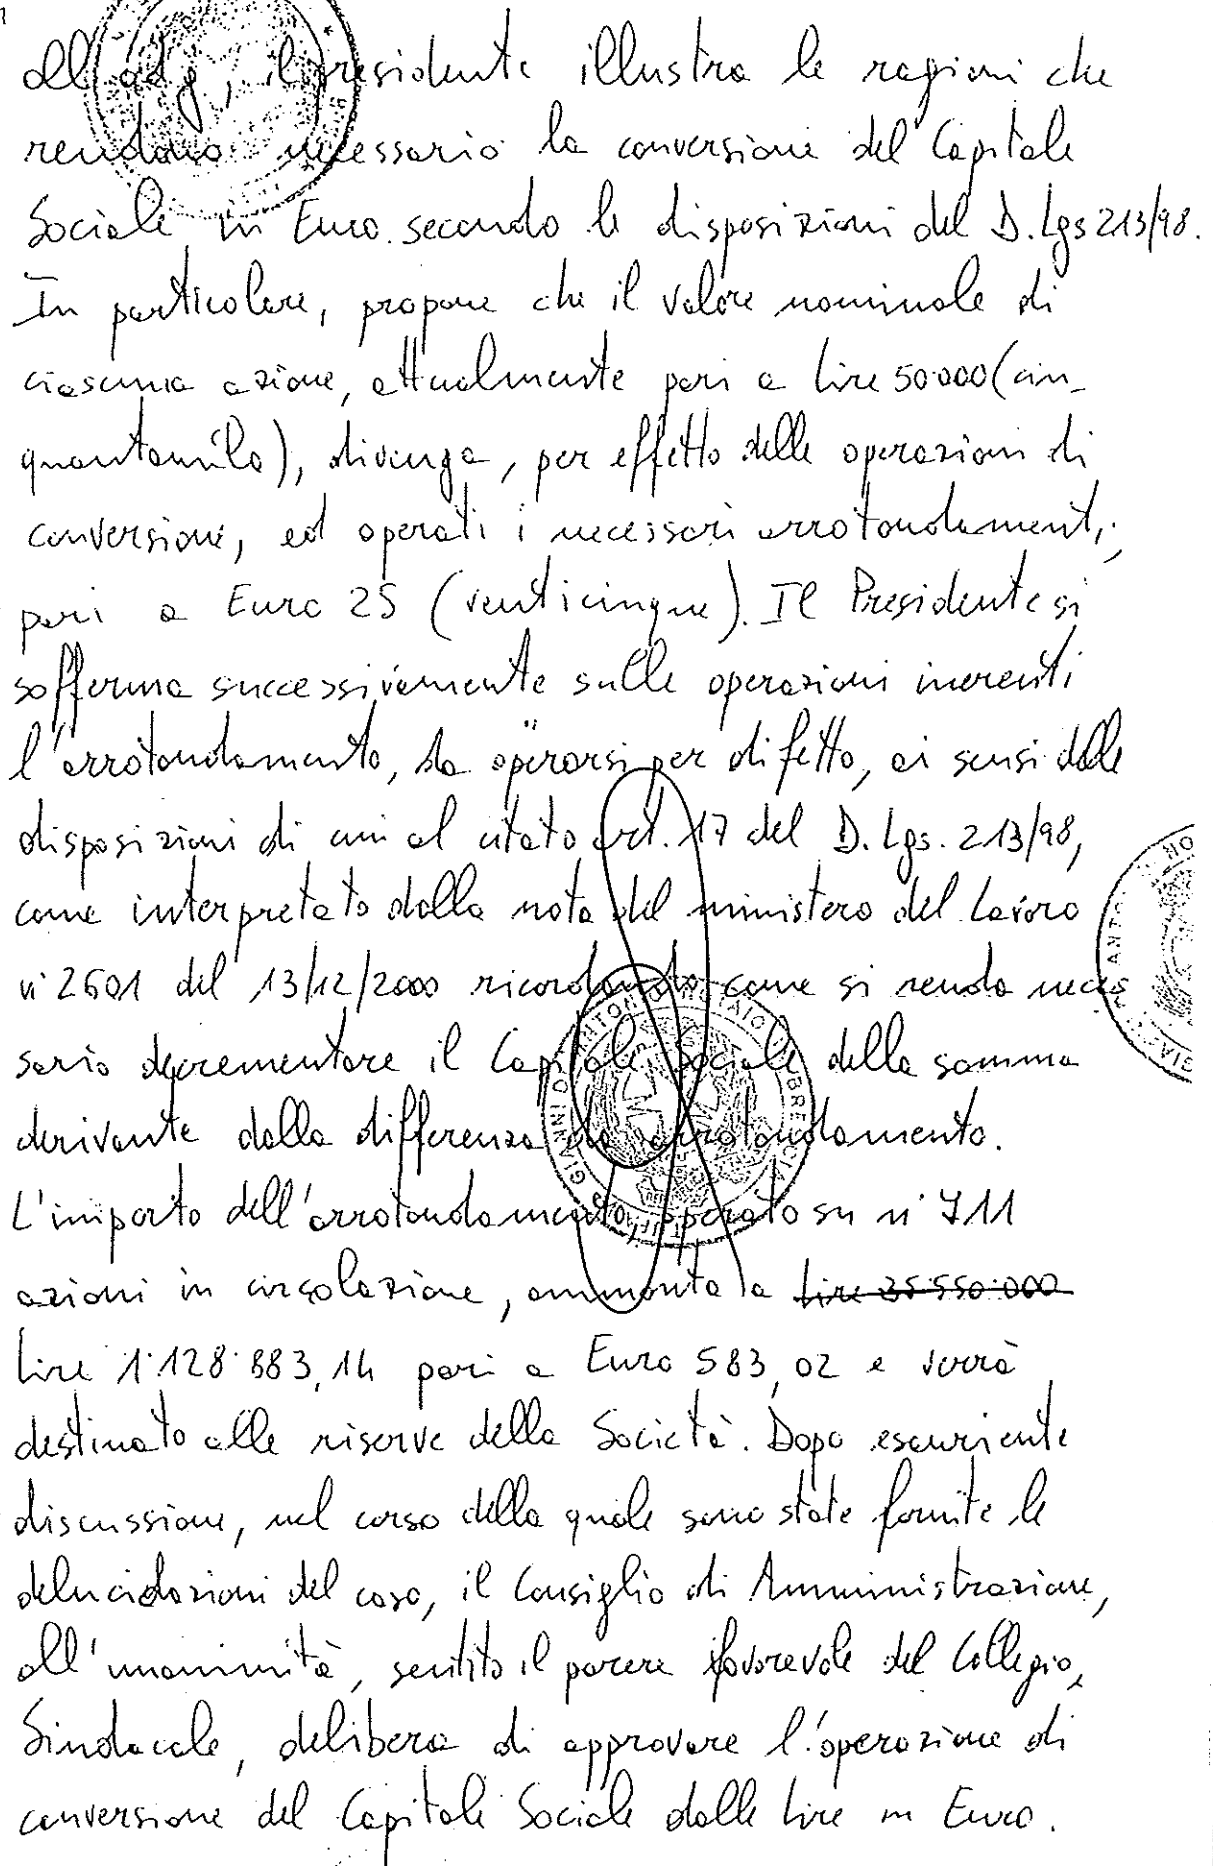 all'odg, il presidente illustra le ragioni che
rendono necessario la conversione del Capitale
Sociale in Euro secondo le disposizioni del D. Lgs 213/98.
In particolare, propone che il valore nominale di
ciascuna azione, attualmente pari a lire 50.000 (cin-
quantamila), divenga, per effetto delle operazioni di
conversione, ed operati i necessari arrotondamenti,
pari a Euro 25 (venticinque). Il Presidente si
sofferma successivamente sulle operazioni inerenti
l'arrotondamento, da operarsi per difetto, ai sensi delle
disposizioni di cui al citato art. 17 del D. Lgs. 213/98,
come interpretato dalla nota del ministero del Lavoro
n° 2601 del 13/12/2000 ricordando come si renda neces
sario decrementare il Capitale Sociale della somma
derivante dalla differenza da arrotondamento.
L'importo dell'arrotondamento, operato su n° 711
azioni in circolazione, ammonta a lire 35.550.000
lire 1.128.883,14 pari a Euro 583,02 e verrà
destinato alle riserve della Società. Dopo esauriente
discussione, nel corso della quale sono state fornite le
delucidazioni del caso, il Consiglio di Amministrazione,
all'unanimità, sentito il parere favorevole del Collegio
Sindacale, delibera di approvare l'operazione di
conversione del Capitale Sociale dalle lire in Euro.